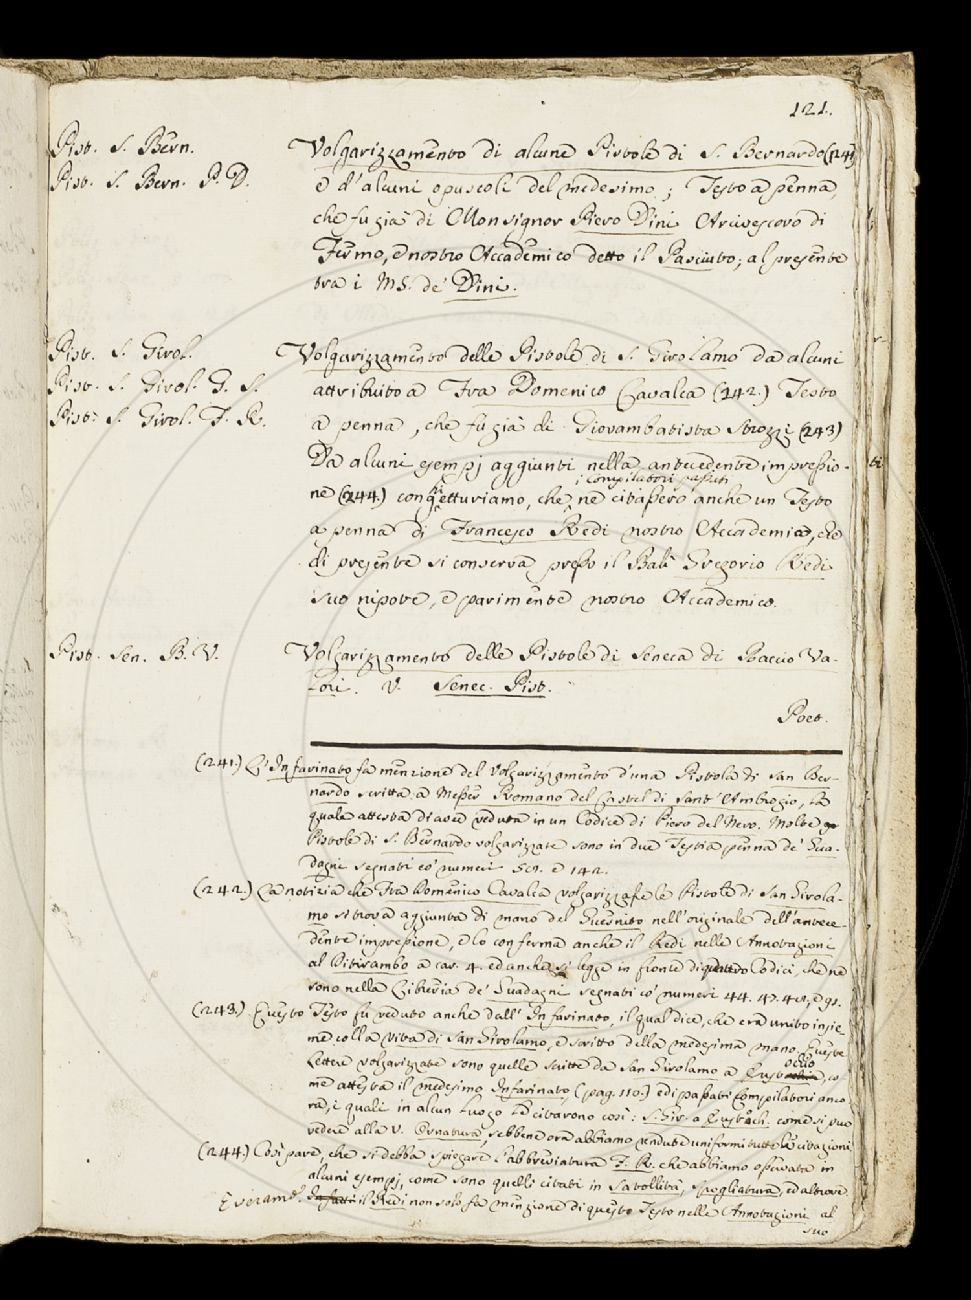 121.
Pist. S. Bern.
Pist. S. Bern. P. D.
Volgarizzamento di alcune Pistole di S. Bernardo (241)
e d'alcuni opuscoli del medesimo; Testo a penna,
che fu già di Monsignor Piero Dini Arcivescovo di
Fermo, e nostro Accademico detto il Pasciuto; al presente
tra i MS. de' Dini.
Pist. S. Girol.
Pist. S. Girol. G. S.
Pist. S. Girol. F. R.
Volgarizzamento delle Pistole di S. Girolamo da alcuni
attribuito a Fra Domenico Cavalca (242) Testo
a penna, che fu già di Giovambatista Strozzi (243)
Da alcuni esempj aggiunti nella antecedente impressio-
i Compilatori passati
ne (244) conghietturiamo, che ne citassero anche un Testo
a penna di Francesco Redi nostro Accademico, che
di presente si conserva presso il Balì Gregorio Redi
suo nipote, e parimente nostro Accademico.
Pist. Sen. B. V.
Volgarizzamento delle Pistole di Seneca di Baccio Va-
lori. V. Senec. Pist.
Poet.
(241.) L'Infarinato fa menzione del Volgarizzamento d'una Pistola di San Ber-
nardo scritta a Messer Romano del Castel di Sant'Ambrogio, la
quale attesta di aver veduta in un Codice di Piero del Nero. Molte
Pistole di S. Bernardo volgarizzate sono in due Testi a penna de' Gua-
dagni segnati co' numeri 59. e 142.
(242.) La notizia che Fra Domenico Cavalca volgarizzasse le Pistole di San Girola-
mo si trova aggiunta di mano del Guernito nell'originale dell'antece-
dente impressione, e lo conferma anche il Redi nelle Annotazioni
al Ditirambo a car. 4. ed anche si legge in fronte di quattro Codici, che ne
sono nella Libreria de' Guadagni segnati co' numeri 44. 47. 48. e 91.
(243.) Questo Testo fu veduto anche dall'Infarinato, il qual dice, che era unito insie
me colla Vita di San Girolamo, e scritto della medesima mano. Queste
Lettere volgarizzate sono quelle scritte da San Girolamo a Eustochio, co-
me attesta il medesimo Infarinato (pag. 110.) ed i passati Compilatori anco
ra, i quali in alcun luogo le citarono così: S. Gir. a Eustoch. come si può
vedere alla V. Ornatura, sebbene ora abbiamo rendute uniformi tutte le citazioni
(244.) Così pare, che si debba spiegare l'abbreviatura F. R. che abbiamo osservata in
alcuni esempj, come sono quelli citati in Satollità, Spogliatura, ed altrove.
E veramte. il Redi non solo fa menzione di questo Testo nelle Annotazioni al
suo